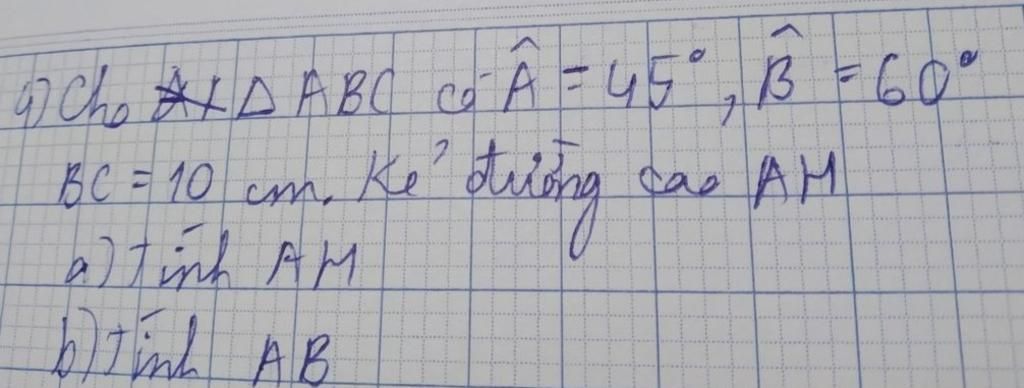 4) Cho △ ABC có Â = 45°, B̂ = 60°
BC = 10 cm. Kẻ đường cao AH
a) Tính AH
b) Tính AB